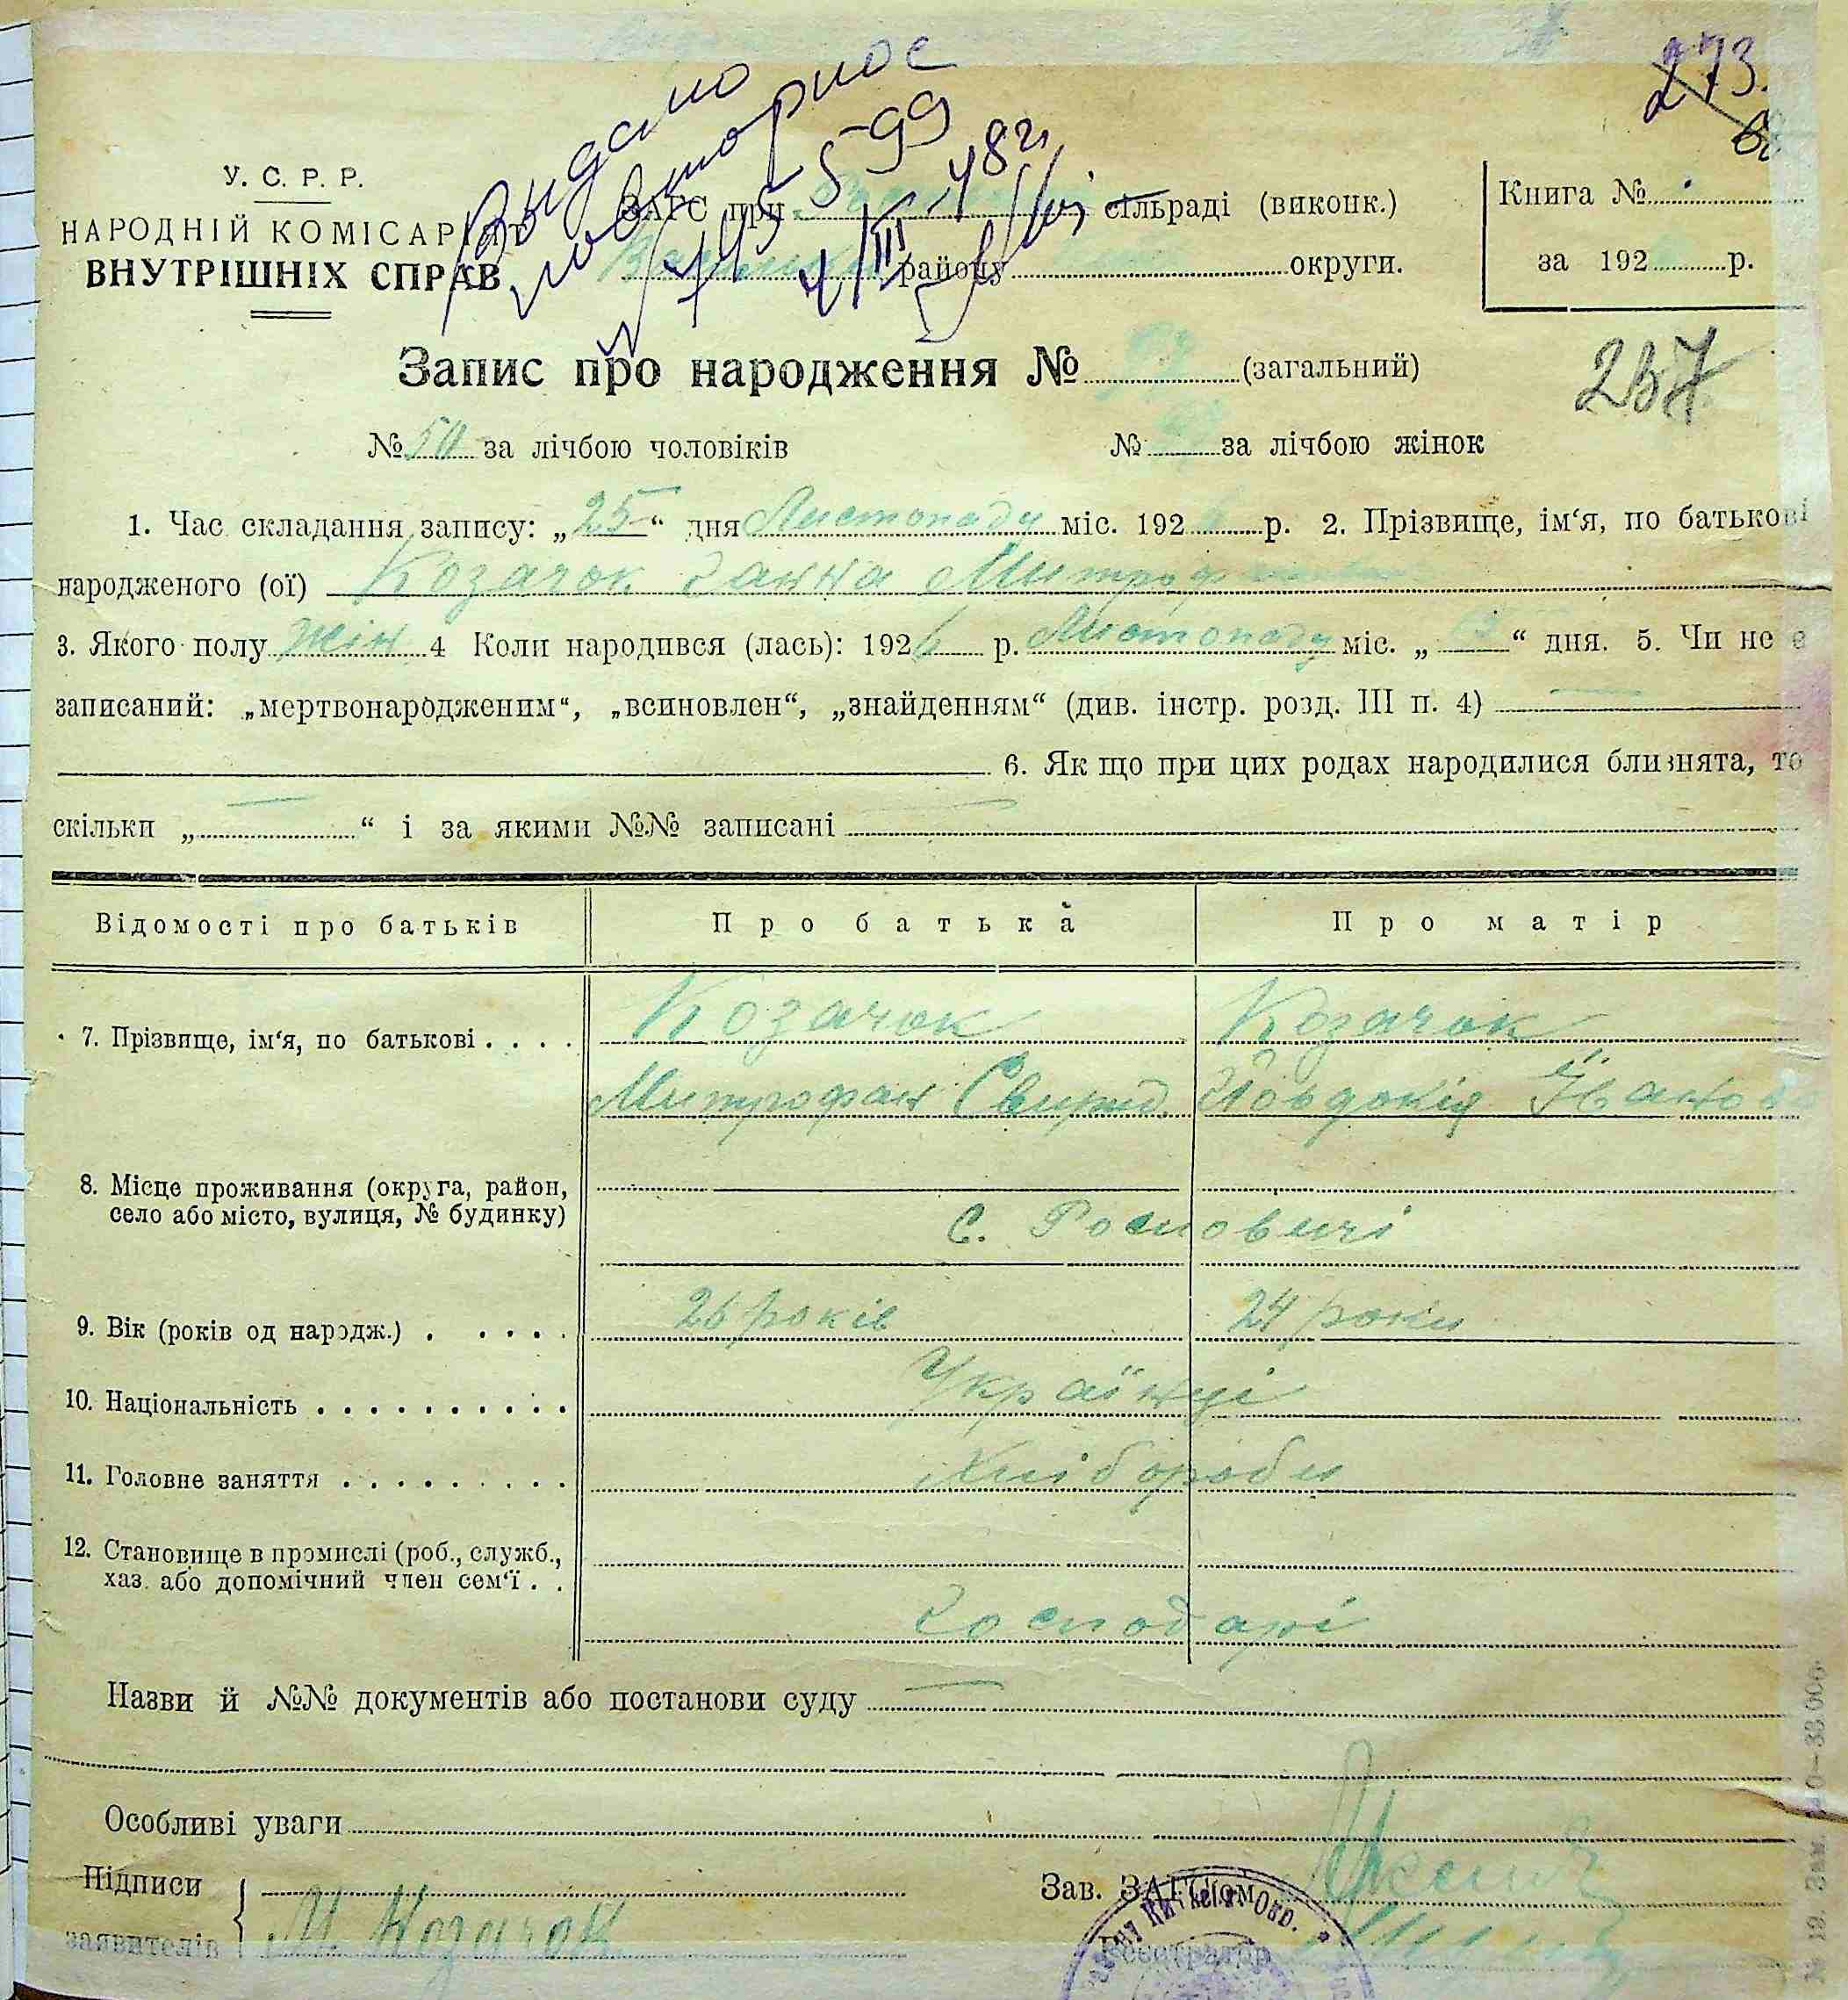 273.
Видано
повторное
5-99
4/III-48 г.
У. С. Р. Р.
НАРОДНІЙ КОМІСАРІЯТ
ВНУТРІШНІХ СПРАВ
ЗАГС при сільраді (виконк.)
району округи.
Книга №
за 192 р.
Запис про народження № (загальний)
257
№ 50 за лічбою чоловіків № за лічбою жінок
1. Час складання запису: „25“ дня Листопаду міс. 192 р. 2. Прізвище, ім'я, по батькові
народженого (ої) Козачок Ганна Митроф
3. Якого полу жін 4 Коли народився (лась): 1926 р. Листопаду міс. „ “ дня. 5. Чи не є
записаний: „мертвонародженим“, „всиновлен“, „знайденням“ (див. інстр. розд. III п. 4)
6. Як що при цих родах народилися близнята, то
скільки „ “ і за якими №№ записані
Відомості про батьків Про батька Про матір
7. Прізвище, ім'я, по батькові . . . . Козачок Козачок
Митрофан Свирид. Йовдокія Іванов
8. Місце проживання (округа, район,
село або місто, вулиця, № будинку)
с. Росновичі
9. Вік (років од народж.) . . . . . 26 років 24 роки
10. Національність . . . . . . . . . . Українці
11. Головне заняття . . . . . . . . . Хлібороби
12. Становище в промислі (роб., служб.,
хаз. або допомічний член сем'ї . .
Господарі
Назви й №№ документів або постанови суду
Особливі уваги
Підписи
заявителів
М. Козачок
Зав. ЗАГСом
Реєстратор